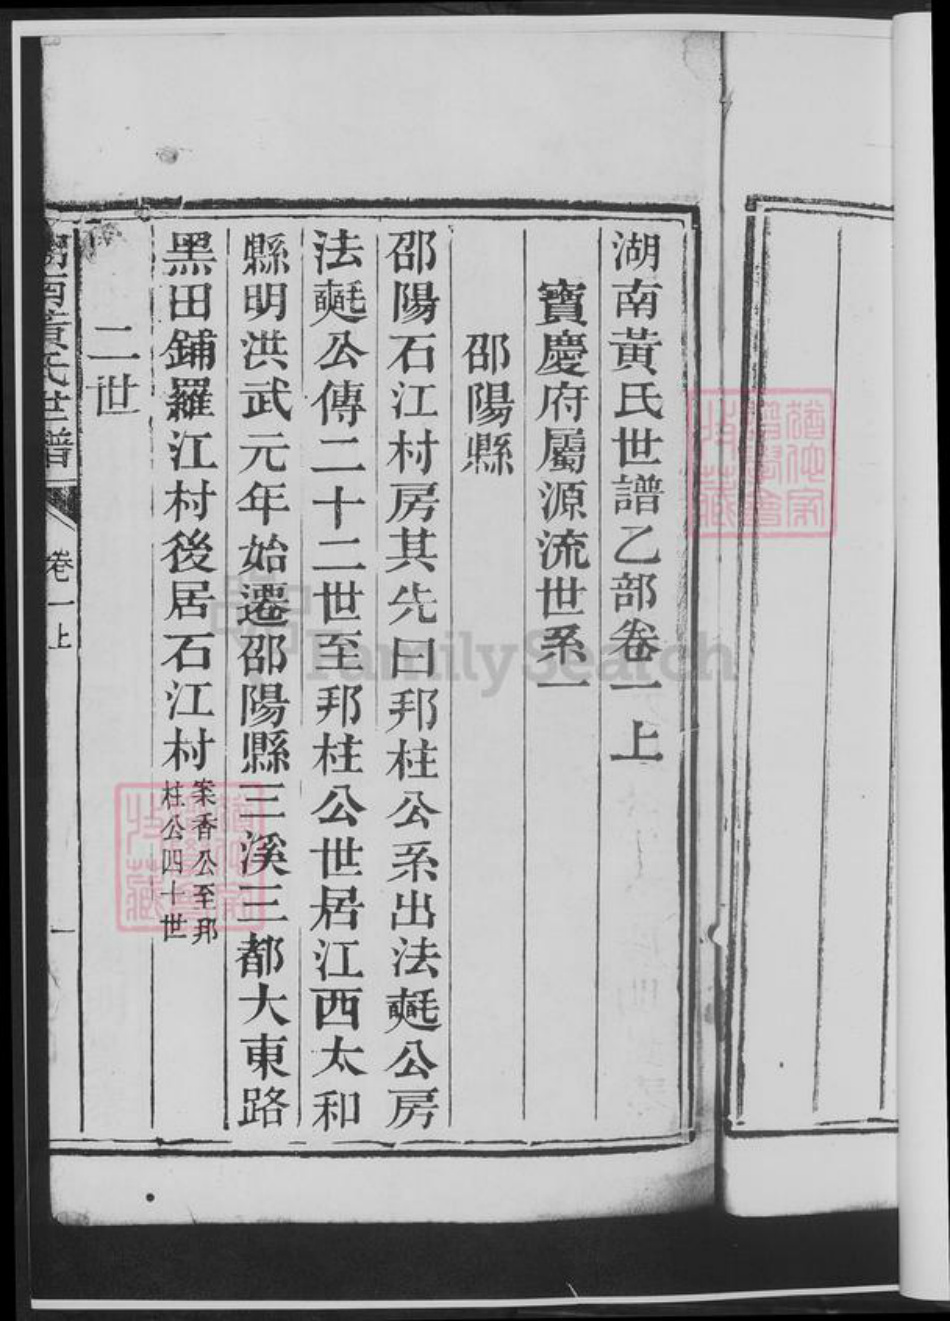 湖南黃氏世譜乙部卷一上
寶慶府屬源流世系一
邵陽縣
邵陽石江村房其先曰邦柱公系出法㲘公房
法㲘公傳二十二世至邦柱公世居江西太和
縣明洪武元年始遷邵陽縣三溪三都大東路
黑田鋪羅江村後居石江村
案香公至邦
柱公四十世
二世
湖南黃氏世譜
卷一上
一
FamilySearch